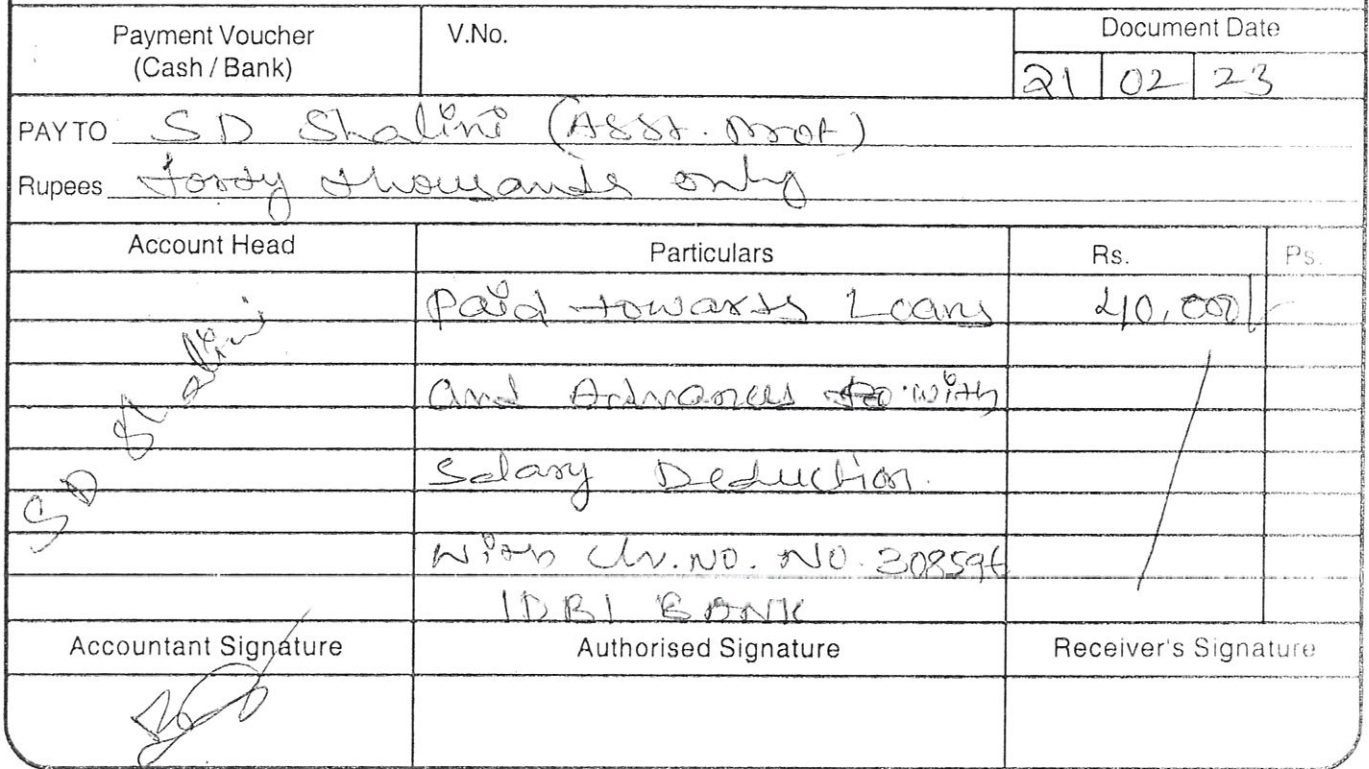 Payment Voucher
(Cash / Bank)
V.No.
Document Date
21 02 23
PAY TO SD Shalini (Asst. Prof)
Rupees Fordy thousands only
Account Head
Particulars
Rs.
Ps.
SD Shalini
Paid towards Loans
40,000/-
and Advances with
Salary Deduction.
With Ch.NO. NO.
IDBI BANK
Accountant Signature
Authorised Signature
Receiver's Signature